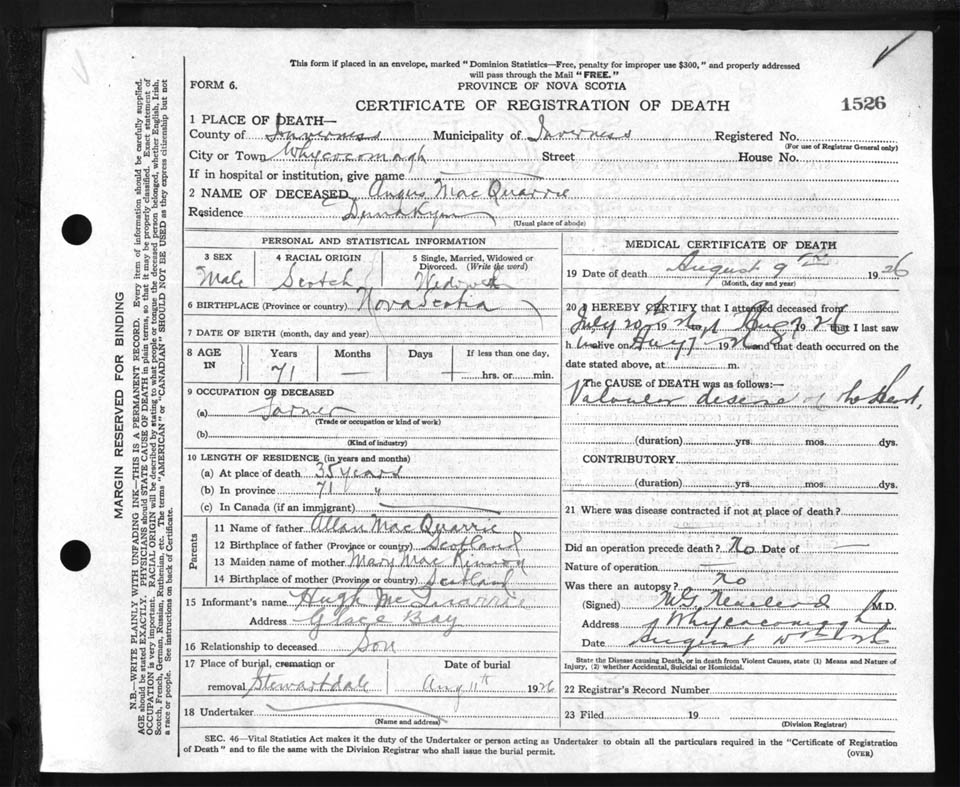 This form if placed in an envelope, marked "Dominion Statistics—Free, penalty for improper use $300," and properly addressed
will pass through the Mail "FREE."
FORM 6.
PROVINCE OF NOVA SCOTIA
CERTIFICATE OF REGISTRATION OF DEATH
1526
1 PLACE OF DEATH—
County of Inverness Municipality of Inverness Registered No.
(For use of Registrar General only)
City or Town Whycocomagh Street House No.
If in hospital or institution, give name
2 NAME OF DECEASED Angus Mac Quarrie
Residence
(Usual place of abode)
PERSONAL AND STATISTICAL INFORMATION
3 SEX
Male
4 RACIAL ORIGIN
Scotch
5 Single, Married, Widowed or
Divorced. (Write the word)
6 BIRTHPLACE (Province or country) Nova Scotia
7 DATE OF BIRTH (month, day and year)
8 AGE
IN
Years
71
Months
—
Days
If less than one day,
hrs. or min.
9 OCCUPATION OF DECEASED
(a) Farmer
(Trade or occupation or kind of work)
(b)
(Kind of industry)
10 LENGTH OF RESIDENCE (in years and months)
(a) At place of death 35 years
(b) In province 71 "
(c) In Canada (if an immigrant)
Parents
11 Name of father Allan Mac Quarrie
12 Birthplace of father (Province or country) Scotland
13 Maiden name of mother Mary Mac
14 Birthplace of mother (Province or country) Scotland
15 Informant's name Hugh McQuarrie
Address Glace Bay
16 Relationship to deceased Son
17 Place of burial, cremation or
removal Stewartdale
Date of burial
Aug 11th 1926
18 Undertaker
(Name and address)
MEDICAL CERTIFICATE OF DEATH
19 Date of death August 9 1926
(Month, day and year)
20 I HEREBY CERTIFY that I attended deceased from
July 20 1926 Aug 7 1926 that I last saw
h alive on Aug 7 1926 and that death occurred on the
date stated above, at m.
The CAUSE OF DEATH was as follows:—
Valvular desease of the Heart,
(duration) yrs. mos. dys.
CONTRIBUTORY
(duration) yrs. mos. dys.
21 Where was disease contracted if not at place of death?
Did an operation precede death? No Date of —
Nature of operation —
Was there an autopsy? No
(Signed) Macleod M.D.
Address Whycocomagh
Date August
State the Disease causing Death, or in death from Violent Causes, state (1) Means and Nature of
Injury, (2) whether Accidental, Suicidal or Homicidal.
22 Registrar's Record Number
23 Filed 19
(Division Registrar)
SEC. 46—Vital Statistics Act makes it the duty of the Undertaker or person acting as Undertaker to obtain all the particulars required in the "Certificate of Registration
of Death" and to file the same with the Division Registrar who shall issue the burial permit.
(OVER)
MARGIN RESERVED FOR BINDING
N.B.—WRITE PLAINLY WITH UNFADING INK—THIS IS A PERMANENT RECORD. Every item of information should be carefully supplied.
AGE should be stated EXACTLY. PHYSICIANS should STATE CAUSE OF DEATH in plain terms, so that it may be properly classified. Exact statement of
OCCUPATION is very important. RACIAL ORIGIN will be described by stating to what people or tongue the deceased person belonged, whether English, Irish,
Scotch, French, German, Russian, Ruthenian, etc. The terms "AMERICAN" or "CANADIAN" SHOULD NOT BE USED as they express citizenship but not
a race or people. See instructions on back of Certificate.